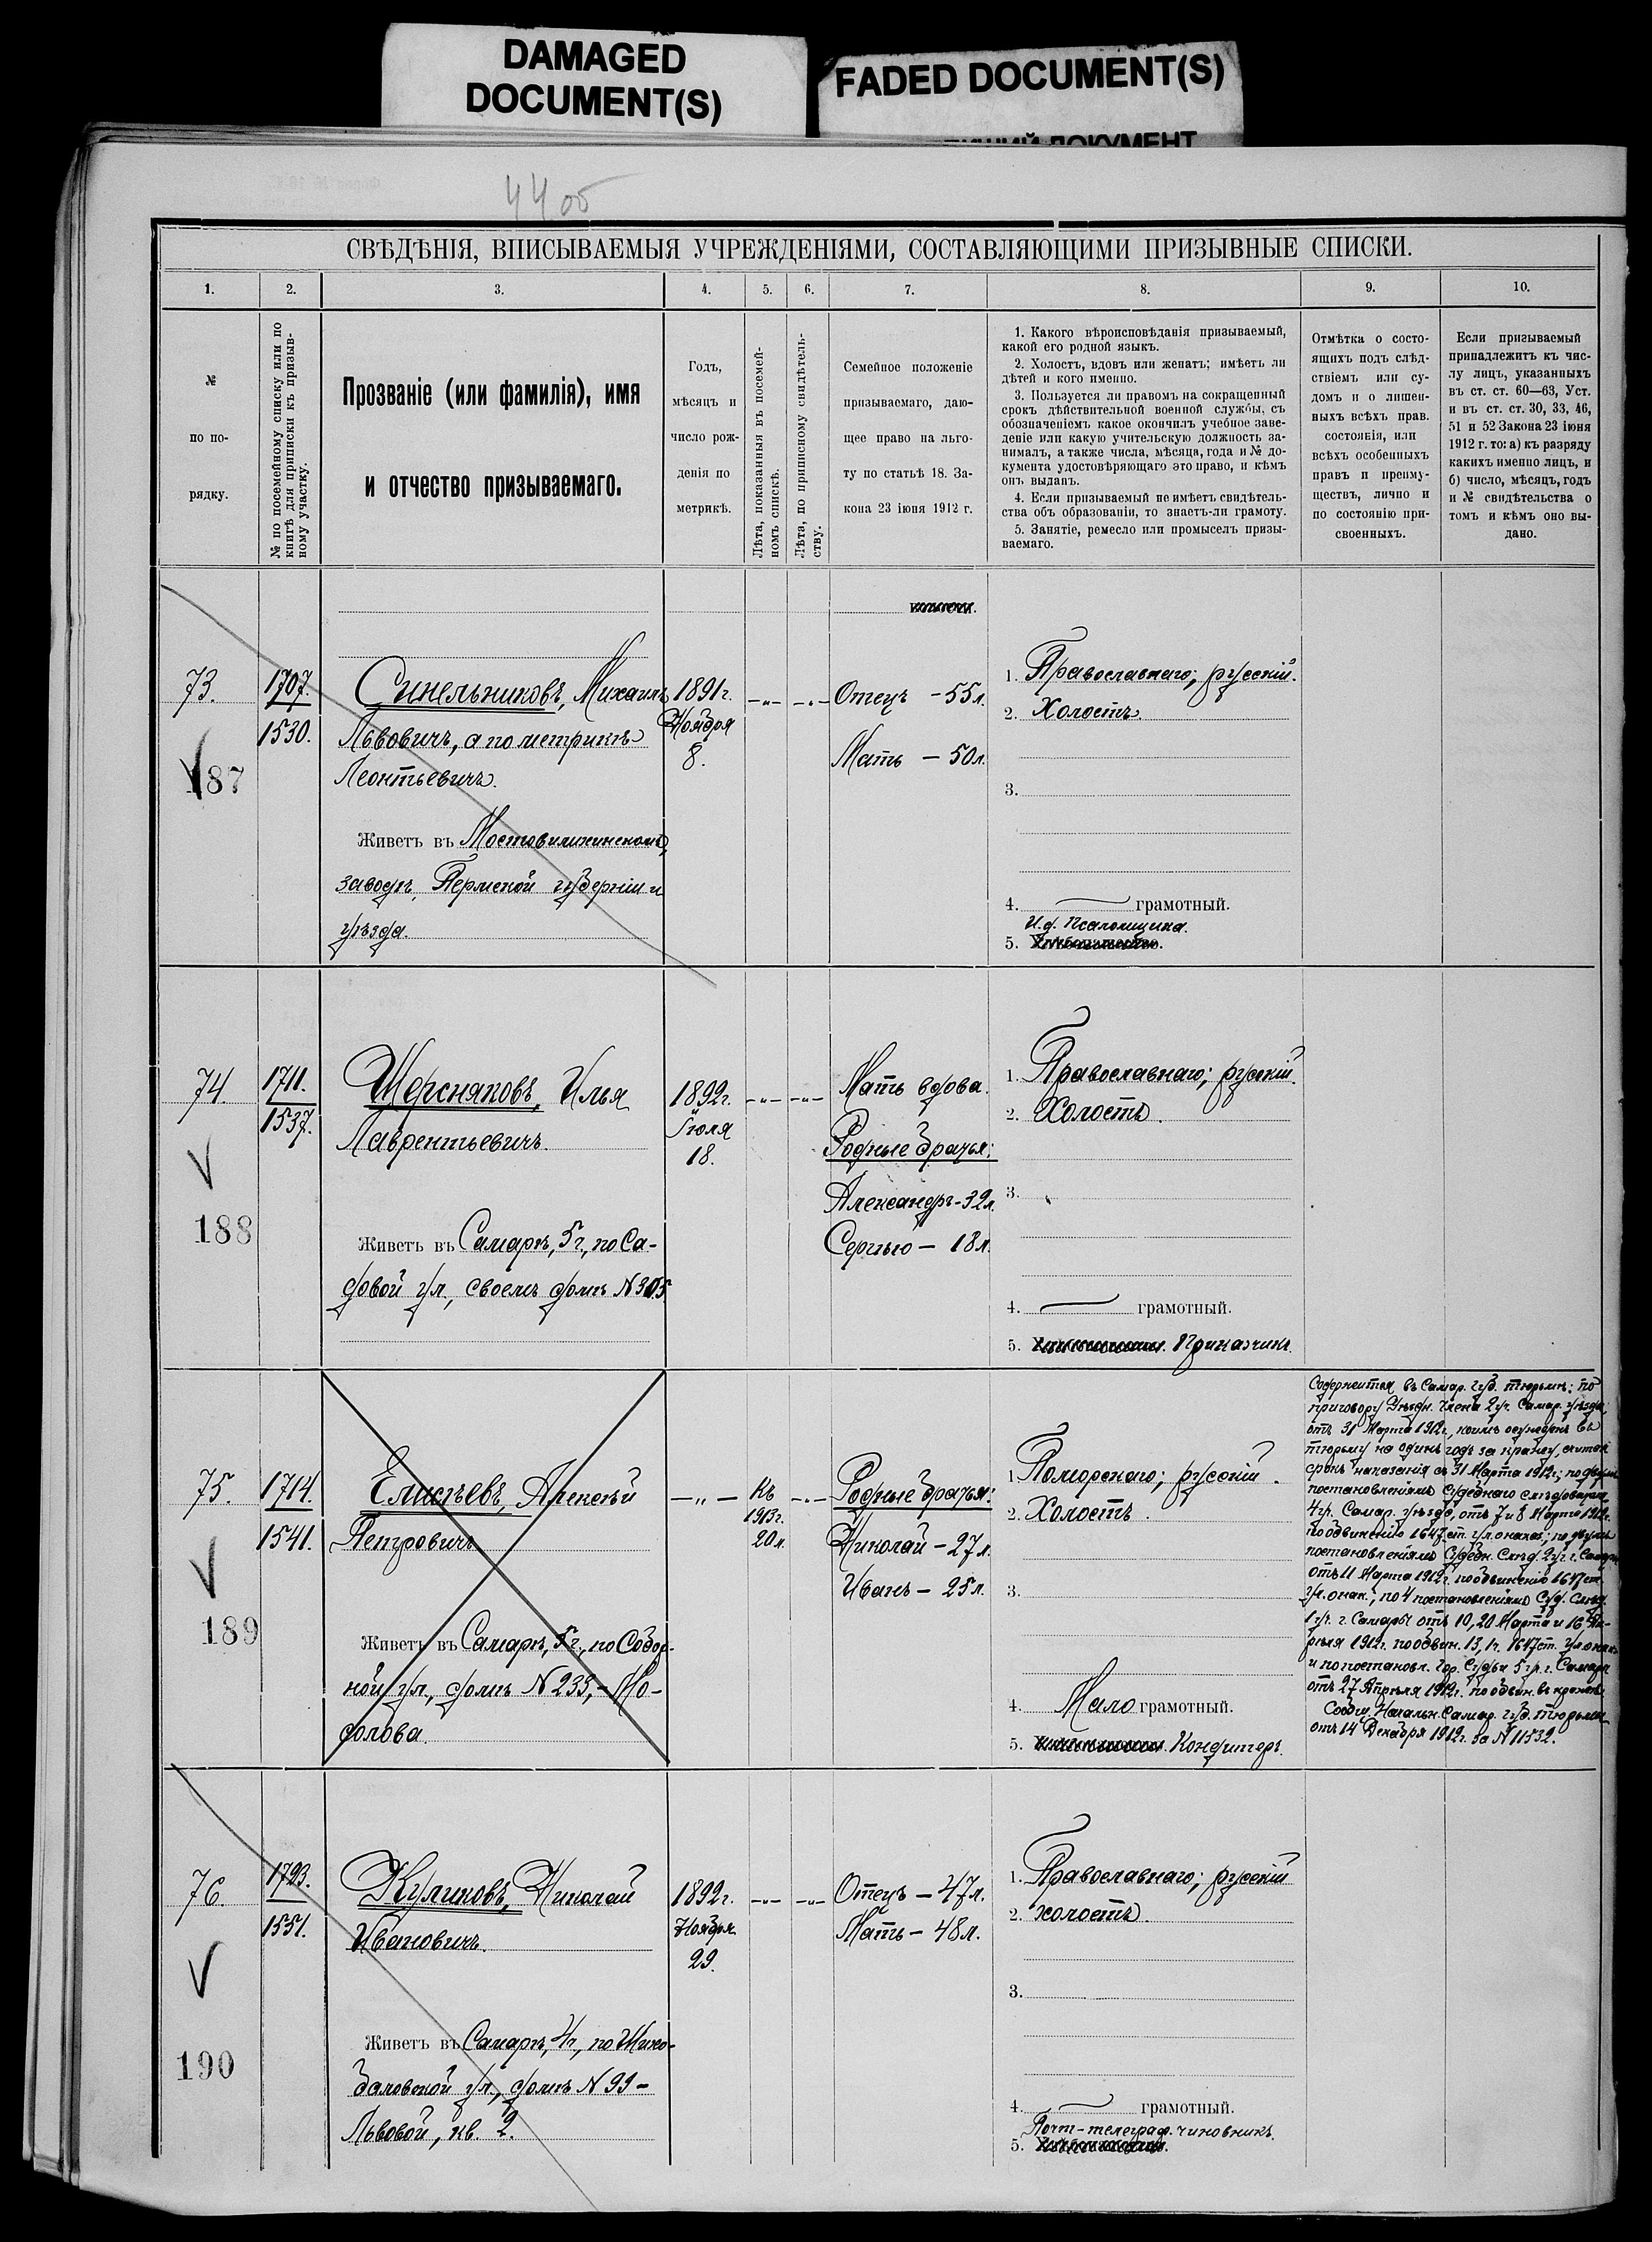 DAMAGED
DOCUMENT(S)
FADED DOCUMENT(S)
44 об
СВѢДѢНІЯ, ВПИСЫВАЕМЫЯ УЧРЕЖДЕНІЯМИ, СОСТАВЛЯЮЩИМИ ПРИЗЫВНЫЕ СПИСКИ.
1. 2. 3. 4. 5. 6. 7. 8. 9. 10.
№
по по-
рядку.
№ по посемейному списку или по
книгѣ для приписки къ призыв-
ному участку.
Прозваніе (или фамилія), имя
и отчество призываемаго.
Годъ,
мѣсяцъ и
число рож-
денія по
метрикѣ.
Лѣта, показанныя въ посемей-
номъ спискѣ.
Лѣта, по приписному свидѣтель-
ству.
Семейное положеніе
призываемаго, даю-
щее право на льго-
ту по статьѣ 18. За-
кона 23 іюня 1912 г.
1. Какого вѣроисповѣданія призываемый,
какой его родной языкъ.
2. Холостъ, вдовъ или женатъ; имѣетъ ли
дѣтей и кого именно.
3. Пользуется ли правомъ на сокращенный
срокъ дѣйствительной военной службы, съ
обозначеніемъ какое окончилъ учебное заве-
деніе или какую учительскую должность за-
нималъ, а также числа, мѣсяца, года и № до-
кумента удостовѣряющаго это право, и кѣмъ
онъ выданъ.
4. Если призываемый не имѣетъ свидѣтель-
ства объ образованіи, то знаетъ-ли грамоту.
5. Занятіе, ремесло или промыселъ призы-
ваемаго.
Отмѣтка о состо-
ящихъ подъ слѣд-
ствіемъ или су-
домъ и о лишен-
ныхъ всѣхъ прав.
состоянія, или
всѣхъ особенныхъ
правъ и преиму-
ществъ, лично и
по состоянію при-
своенныхъ.
Если призываемый
принадлежитъ къ чис-
лу лицъ, указанныхъ
въ ст. ст. 60—63, Уст.
и въ ст. ст. 30, 33, 46,
51 и 52 Закона 23 іюня
1912 г. то: а) къ разряду
какихъ именно лицъ, и
б) число, мѣсяцъ, годъ
и № свидѣтельства о
томъ и кѣмъ оно вы-
дано.
73.
187
1707.
1530.
Синельниковъ, Михаилъ
Львовичъ, а по метрикѣ
Леонтьевичъ.
Живетъ въ
заводѣ, Пермской губерніи и
уѣзда.
1891 г.
Ноября
8.
Отецъ - 55 л.
Мать - 50 л.
1. Православнаго; русскій.
2. Холостъ.
3.
4. грамотный.
И.д. Псаломщика.
5.
74.
188
1711.
1537.
Шерсняковъ, Илья
Лаврентьевичъ.
Живетъ въ Самарѣ, 5 ч., по Са-
довой ул., своемъ домѣ № 305
1892 г.
Іюля
18.
Мать вдова.
Родные братья:
Александръ - 32 л.
Сергѣю - 18 л.
1. Православнаго; русскій.
2. Холостъ.
3.
4. грамотный.
5. Приказчикъ.
75.
189
1714.
1541.
Елисѣевъ, Алексѣй
Петровичъ
Живетъ въ Самарѣ, 5 ч., по Собор-
ной ул., домѣ № 235, - Мо-
лова.
къ
1913 г.
20 л.
Родные братья:
Николай - 27 л.
Иванъ - 25 л.
1. Поморскаго; русскій.
2. Холостъ.
3.
4. Мало грамотный.
5. Кондитеръ.
Содержится въ Самар. губ. тюрьмѣ: по
приговору Уѣздн. Члена 2 уч. Самар. уѣзда,
отъ 31 Марта 1912 г., коимъ осужденъ въ
тюрьму на одинъ годъ за кражу, считая
срокъ наказанія съ 31 Марта 1912 г.; по двумъ
постановленіямъ Судебнаго слѣдователя
4 уч. Самар. уѣзда, отъ 7 и 8 Марта 1912 г.
по обвиненію 1647 ст. ул. о наказ.; по двумъ
постановленіямъ Судебн. Слѣд. 2 уч. г. Самары
отъ 11 Марта 1912 г. по обвиненію 1647 ст.
ул. о нак., по 4 постановленіямъ Суд. Слѣд.
1 уч. г. Самары отъ 10, 20 Марта и 16 Ап-
рѣля 1912 г. по обвин. 13, 1 ч. 1647 ст. ул. о нак.
и по постановл. Гор. Судьи 5 уч. г. Самары
отъ 27 Апрѣля 1912 г. по обвин. въ кражѣ.
Сообщ. Начальн. Самар. губ. тюрьмы
отъ 14 Декабря 1912 г. за № 11532.
76.
190
1793.
1551.
Куликовъ, Николай
Ивановичъ.
Живетъ въ Самарѣ, 4 ч., по Шихо-
баловской ул., домъ № 99 -
Львовой, кв. 2.
1892 г.
Ноября
29.
Отецъ - 47 л.
Мать - 48 л.
1. Православнаго; русскій
2. холостъ.
3.
4. грамотный.
Почт-телеграф. чиновникъ.
5.